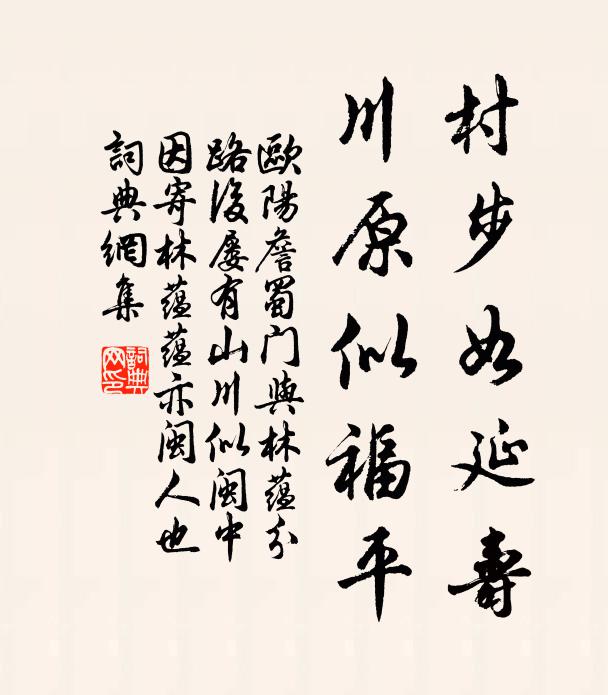 村步如延壽
川原似福平
歐陽詹蜀門與林蘊分
路後屢有山川似閩中
因寄林蘊蘊亦閩人也
詞典網集
詞典
网印